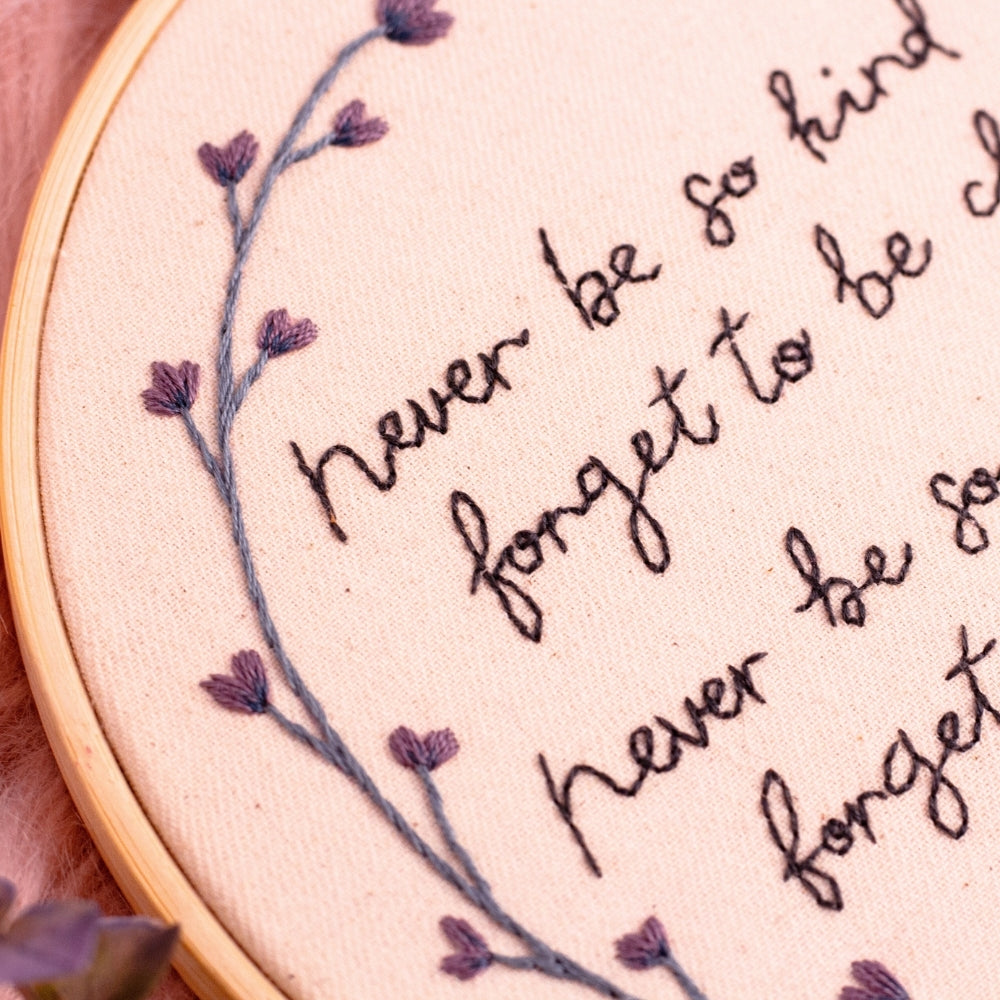 never be so kind
forget to be
never be so
forget